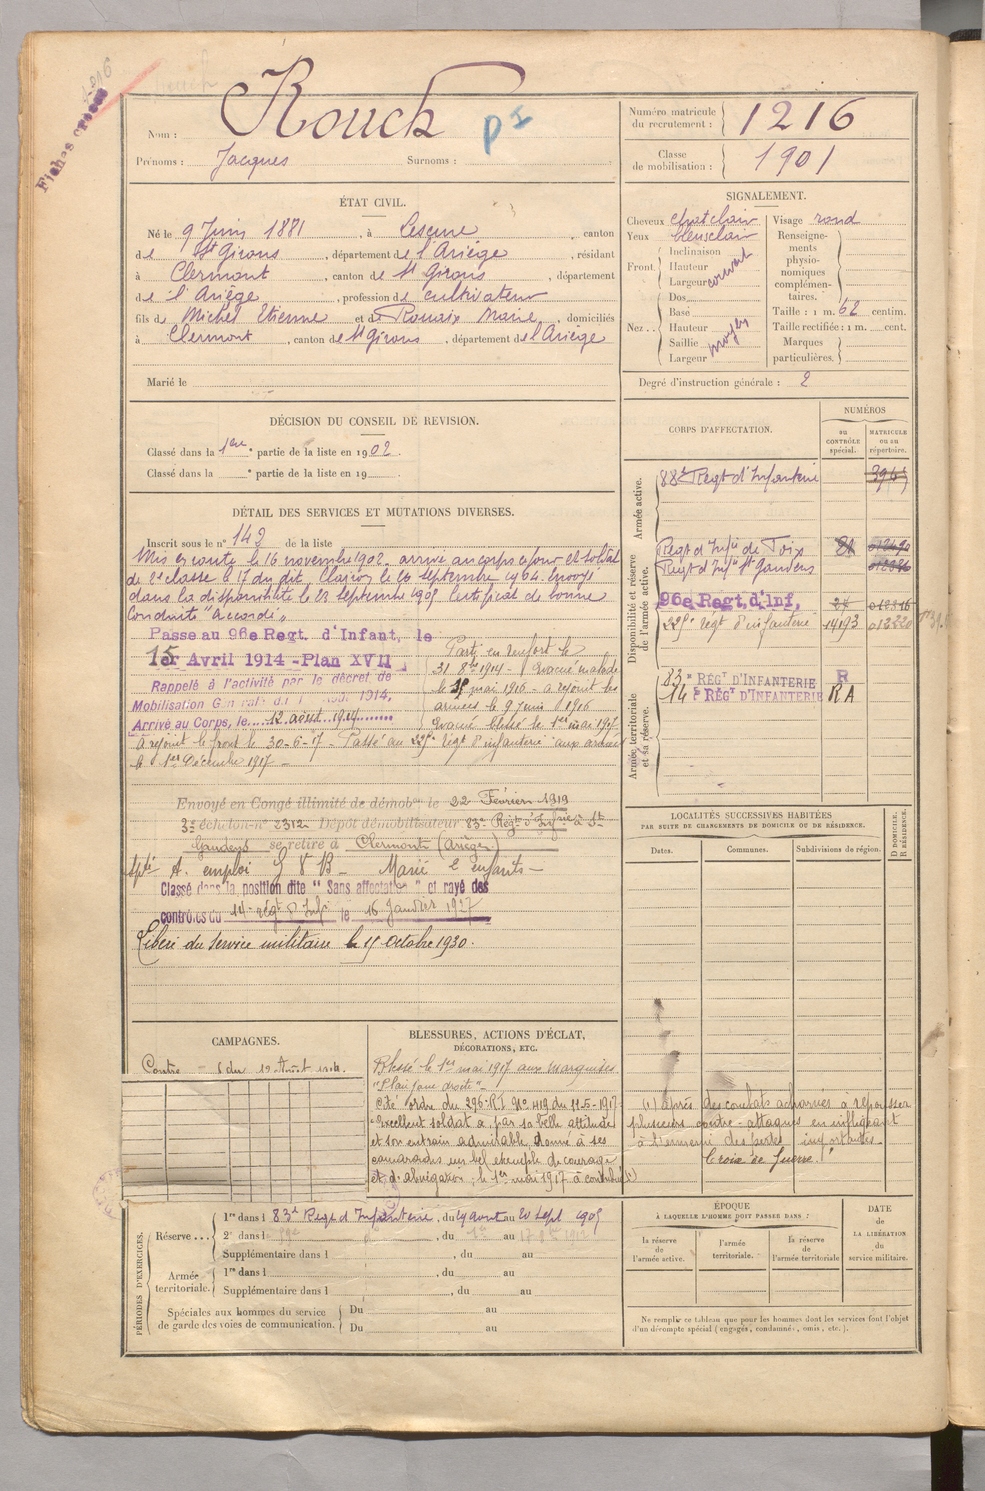 1216
Fiches
Nom : Rouch
PI
Prénoms : Jacques Surnoms :
Numéro matricule du recrutement : 1216
Classe de mobilisation : 1901
ÉTAT CIVIL.
Né le 9 Juin 1881, à Lescure, canton
de St Girons, département de l'Ariège, résidant
à Clermont, canton de St Girons, département
de l'Ariège, profession de cultivateur
fils de Michel Etienne et de Rouaix Marie, domiciliés
à Clermont, canton de St Girons, département de l'Ariège
Marié le
SIGNALEMENT.
Cheveux chat clair
Yeux bleus clair
Front
Inclinaison
Hauteur
Largeur
couvert
Nez
Dos
Base
Hauteur
Saillie
Largeur
moyen
Visage rond
Renseignements physionomiques complémentaires.
Taille : 1 m. 62 centim.
Taille rectifiée : 1 m. cent.
Marques particulières.
Degré d'instruction générale : 2
DÉCISION DU CONSEIL DE REVISION.
Classé dans la 1ere partie de la liste en 1902.
Classé dans la partie de la liste en 19
DÉTAIL DES SERVICES ET MUTATIONS DIVERSES.
Inscrit sous le n° 142 de la liste
Mis en route le 16 novembre 1902. arrivé au corps ce jour et soldat
de 2e classe le 17 du dit. Clairon le 26 septembre 1904. Envoyé
dans la disponibilité le 23 septembre 1905 Certificat de bonne
Conduite "Accordé"
Passe au 96e Regt. d'Infant, le
1er Avril 1914 - Plan XVII
15
Rappelé à l'activité par le décret de
Mobilisation Générale du 1914,
Arrivé au Corps, le 12 août 1914
Parti en renfort le
31 8bre 1914 - Evacué malade
le 15 mai 1916 - a rejoint les
armées le 9 Juin 1916
Evacué blessé le 1er mai 1917
a rejoint le front le 30-6-17 - Passé au 225e régt d'infanterie aux armées
le 1er Décembre 1917 -
Envoyé en Congé illimité de démobon le 22 Février 1919
3e échelon n° 2312 Dépôt démobilisateur 83e Régt d'Infrie à St
Gaudens se retire à Clermont (Ariège)
A. emploi S V B - Marié 2 enfants -
Classé dans la position dite "Sans affectation" et rayé des
contrôles du 14e régt d'Inf le 16 Janvier 1927
Libéré du service militaire le 15 octobre 1930.
CORPS D'AFFECTATION.
NUMÉROS
au CONTRÔLE spécial.
MATRICULE ou au répertoire.
Armée active.
88e Régt d'Infanterie
Disponibilité et réserve de l'armée active.
Regt d'Infie de Foix 81
Regt d'Infie St Gaudens
96e Regt. d'Inf, 27 012316
225e régt d'infanterie 14193 012320
Armée territoriale et sa réserve.
83e RÉGT D'INFANTERIE R
14e RÉGT D'INFANTERIE RA
LOCALITÉS SUCCESSIVES HABITÉES
PAR SUITE DE CHANGEMENTS DE DOMICILE OU DE RÉSIDENCE.
Dates. Communes. Subdivisions de région.
D DOMICILE. R RÉSIDENCE.
CAMPAGNES.
Contre du 12 Août 1914
BLESSURES, ACTIONS D'ÉCLAT,
DÉCORATIONS, ETC.
Blessé le 1er mai 1917 aux Marquises
"Plaie joue droite"
Cité ordre du 296e RI N° 419 du 11-5-1917
"Excellent soldat a, par sa belle attitude
et son entrain admirable, donné à ses
camarades un bel exemple de courage
et d'abnégation; le 1er mai 1917 à contribué (1)
(1) après des combats acharnés à repousser
plusieurs contre-attaques en infligeant
à l'ennemi des pertes importantes.
Croix de Guerre.
PÉRIODES D'EXERCICES.
Réserve
1re dans l 83e Régt d'Infanterie, du 24 août au 20 Sept 1908
2e dans l , du 1er au 17 1912
Supplémentaire dans l , du au
Armée territoriale.
1re dans l , du au
Supplémentaire dans l , du au
Spéciales aux hommes du service de garde des voies de communication.
Du au
Du au
ÉPOQUE
À LAQUELLE L'HOMME DOIT PASSER DANS :
la réserve de l'armée active.
l'armée territoriale.
la réserve de l'armée territoriale
DATE de LA LIBÉRATION du service militaire.
Ne remplir ce tableau que pour les hommes dont les services font l'objet
d'un décompte spécial (engagés, condamnés, omis, etc.).